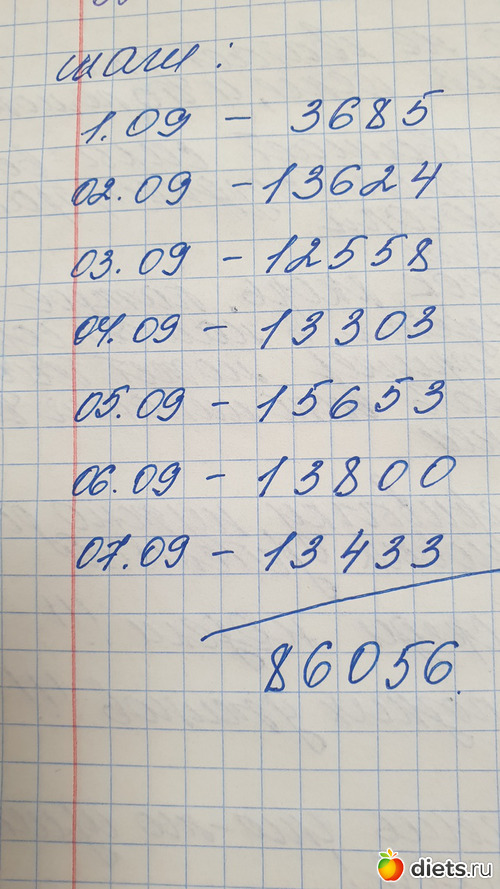 шаги:
1.09 - 3685
02.09 - 13624
03.09 - 12558
04.09 - 13303
05.09 - 15653
06.09 - 13800
07.09 - 13433
86056.
diets.ru